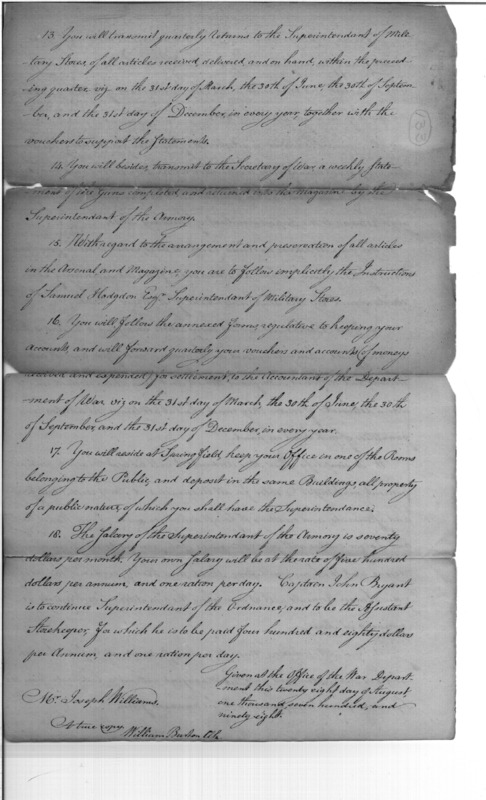 13. You will transmit quarterly returns to the Superintendant of Mili-
-tary Stores of all articles received delivered, and on hand, within the preced-
-ing quarter viz. on the 31st day of March, the 30th of June, the 30th of Septem-
-ber, and the 31st day of December, in every year, together with the
vouchers to support the Statements.
14. You will besides, transmit to the Secretary of War a weekly State-
ment of the Guns completed and returned into the Magazine by the
Superintendant of the Armory.
15. With regard to the arrangement and preservation of all articles
in the Arsenal and Magazine, you are to follow implicitly the Instructions
of Samuel Hodgdon Esqr. Superintendant of Military Stores.
16. You will follow the annexed forms, regulative to keeping your
accounts, and will forward quarterly your vouchers and accounts (of moneys
received and expended) for settlement, to the Accountant of the Depart-
-ment of War viz on the 31st day of March, the 30th of June, the 30th
of September, and the 31st day of December, in every year.
17. You will reside at Springfield, keep your Office in one of the Rooms
belonging to the Public, and deposit in the same Buildings, all property
of a public nature, of which you shall have the Superintendance.
18. The Salary of the Superintendant of the Armory is seventy
dollars per month. Your own Salary will be at the rate of five hundred
dollars per annum, and one ration per day. Captain John Bryant
is to continue Superintendant of the Ordnance, and to be the Assistant
Storekeeper, for which he is to be paid four hundred and eighty dollars
per Annum, and one ration per day.
Given at the Office of the War Depart-
ment this twenty eight day of August
one thousand seven hundred, and
ninety eight.
Mr. Joseph Williams.
A true copy.
William